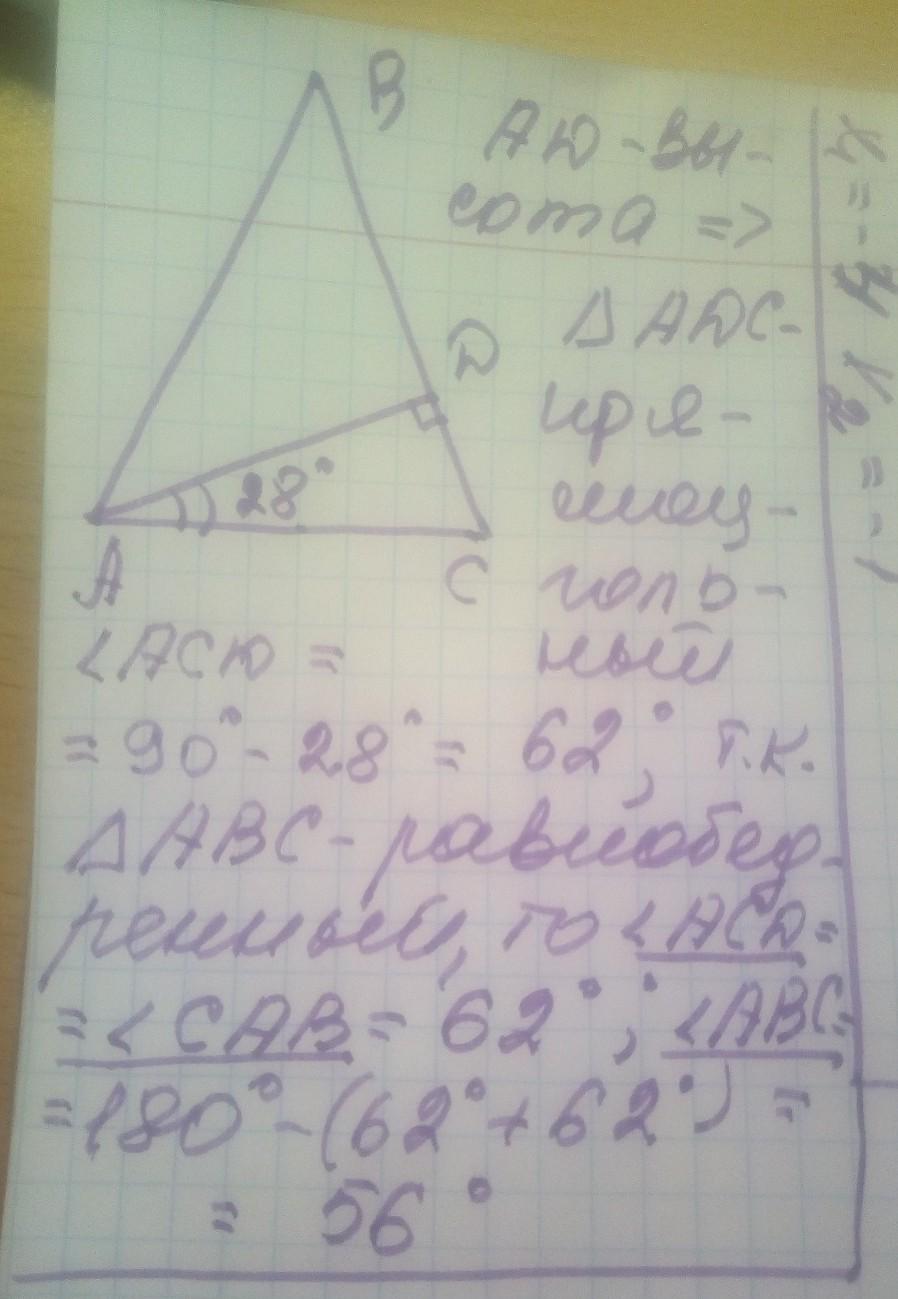 B
AD - вы-
сота =>
△ADC-
пря-
моу-
голь-
ный
D
28°
A
C
<ACD =
= 90° - 28° = 62°, т.к.
△ABC - равнобед-
ренный, то <ACD =
= < CAB = 62°; <ABC=
= 180° - (62° + 62°) =
= 56°